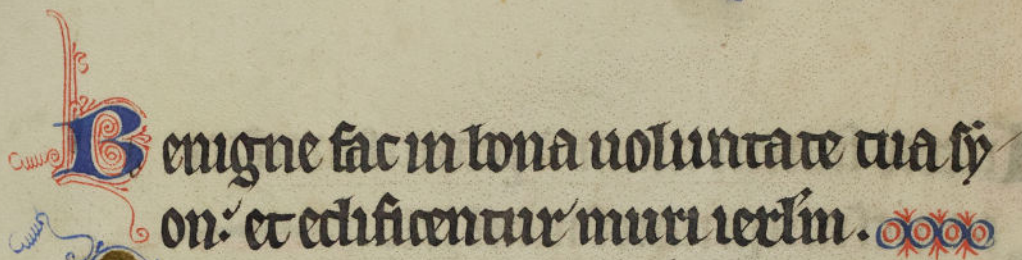 Benigne fac in bona uoluntate tua sẏ
on: et edificentur muri ierl̄m.